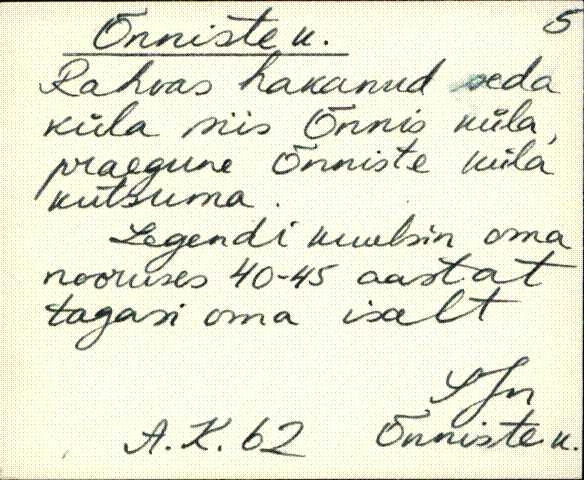 5
Õnniste k.
Rahvas hakanud seda
küla siis Õnnis küla,
praegune Õnniste küla
kutsuma.
Legendi kuulsin oma
nooruses 40-45 aastat
tagasi oma isalt
A.K. 62 Õnniste k.